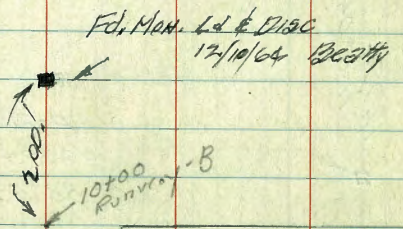 Fd. Mon. Ld & Disc
12/10/64 Beatty
200.
10+00
Runway-B